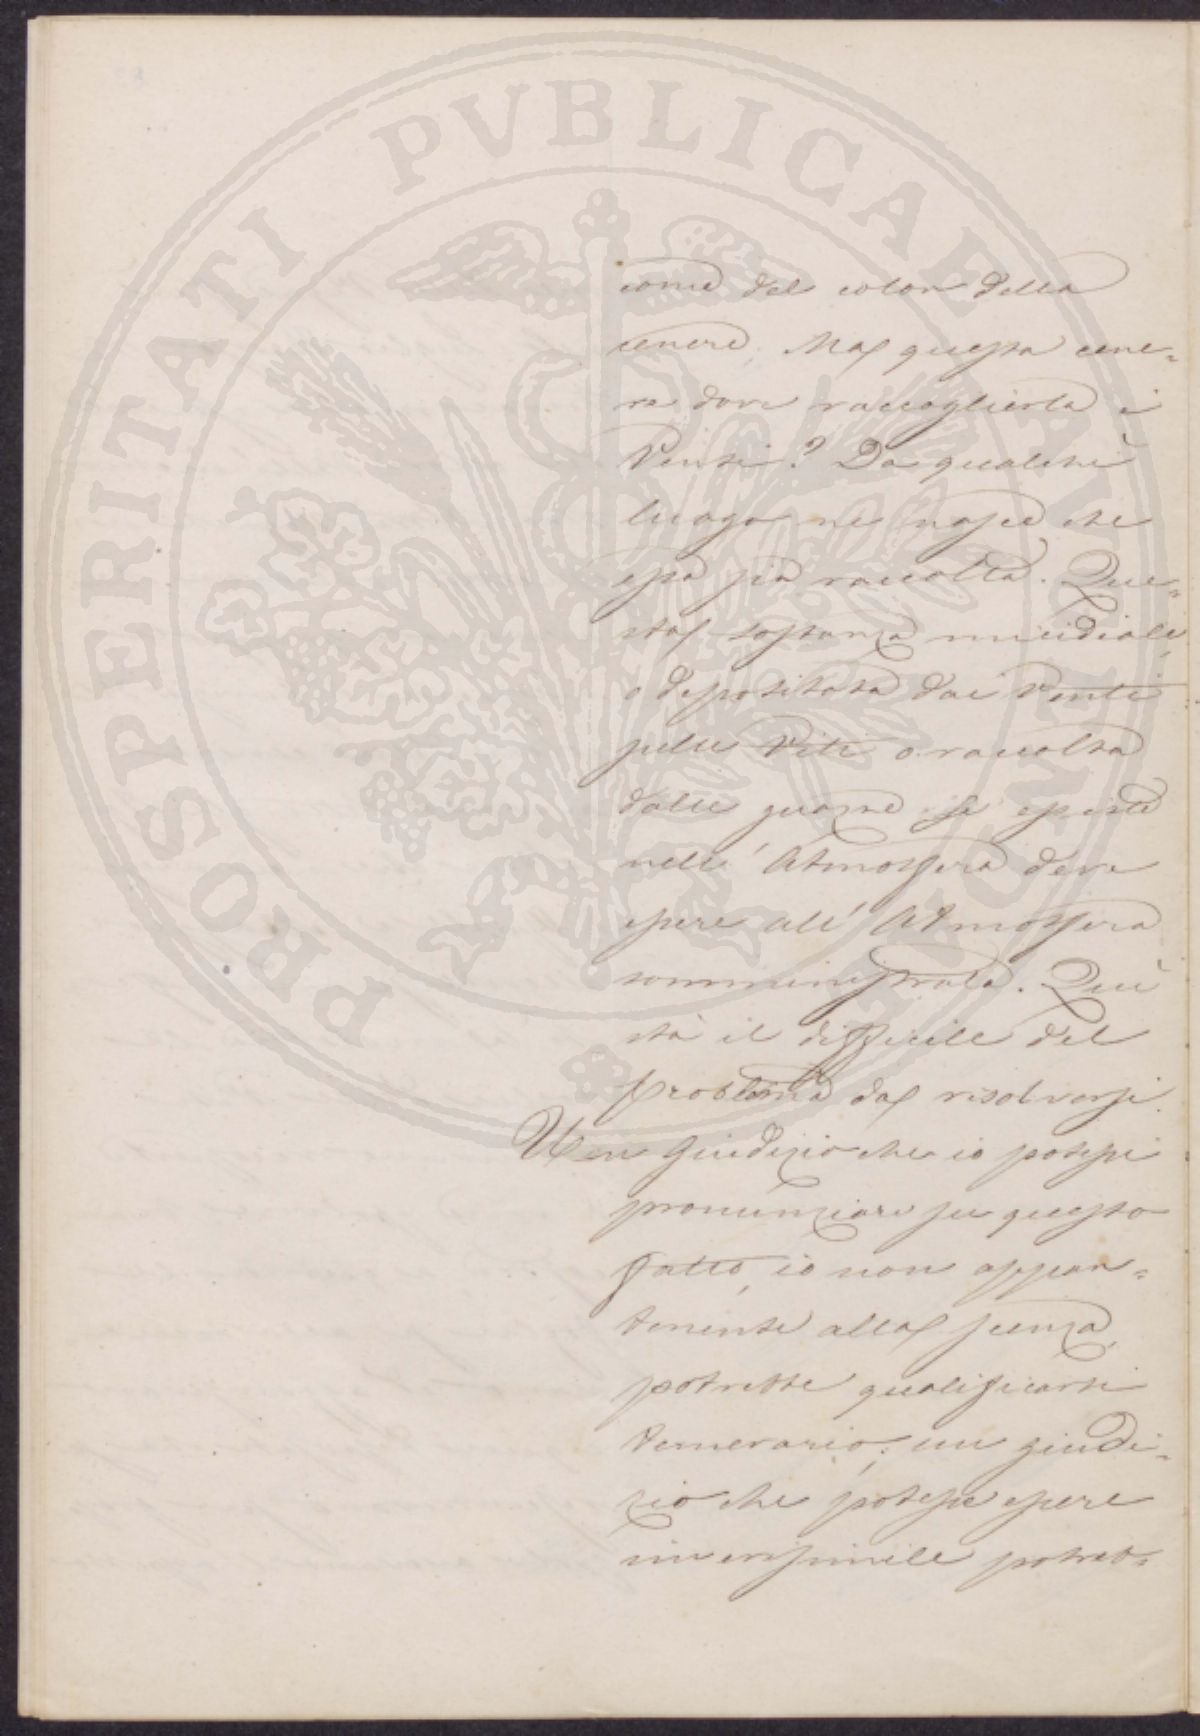 PROSPERITATI PVBLICAE AVGENDAE
come del color della
cenere. Ma questa cene=
re dove raccoglierla i
Venti? Da qualche
luogo ne nasce che
essa sia raccolta. Que=
sta sostanza micidiale,
o depositata dai Venti
sulle Viti o raccolta
dalle guazze se esiste
nell' Atmosfera deve
essere all' Atmosfera
somministrata. Quì
stà il difficile del
Problema da risolversi.
Un Giudizio che io potessi
pronunziare su questo
fatto, io non appar=
tenente alla scienza,
potrebbe qualificarsi
temerario; un giudi=
zio che potesse essere
inverisimile potreb=